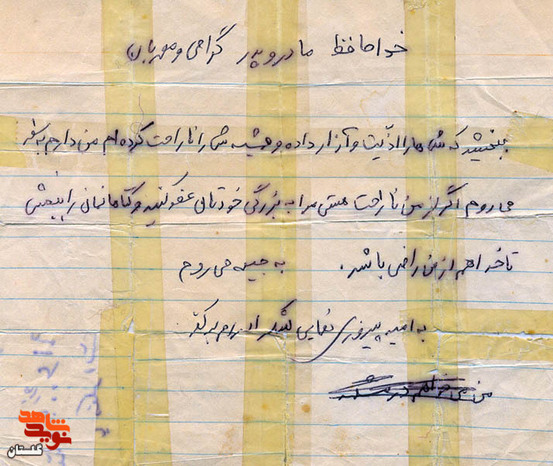 خداحافظ مادر و پدر گرامی و مهربان
ببخشید که شما را اذیت و آزار داده و همیشه شما را ناراحت کرده ام من دارم به سفر
می روم اگر از من ناراحت هستی مرا به بزرگی خودتان عفو کنید و گناهانمان را ببخش
تا خدا هم از من راضی باشد. به جبهه می روم
به امید پیروزی نهایی لشگر اسلام بر کفر
من
نوید شاهد
گلستان